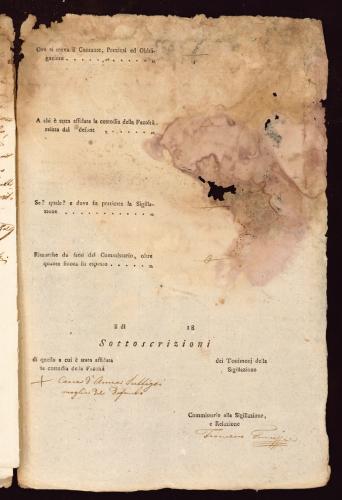 Ove si trova il Contante, Preziosi ed Obbli-
gazioni
A chi è stata affidata la custodia della Facoltà
relitta dal defunto
Se? quale? e dove fu praticata la Sigilla-
zione
Rimarche da farsi dal Commissario, oltre
quanto finora fu espresso
li di 18
Sottoscrizioni
di quello a cui è stata affidata
la custodia della Facoltà
dei Testimonj della
Sigillazione
+ Croce d'Anna
moglie del Defunto
Commissario alla Sigillazione,
e Relazione
Francesco